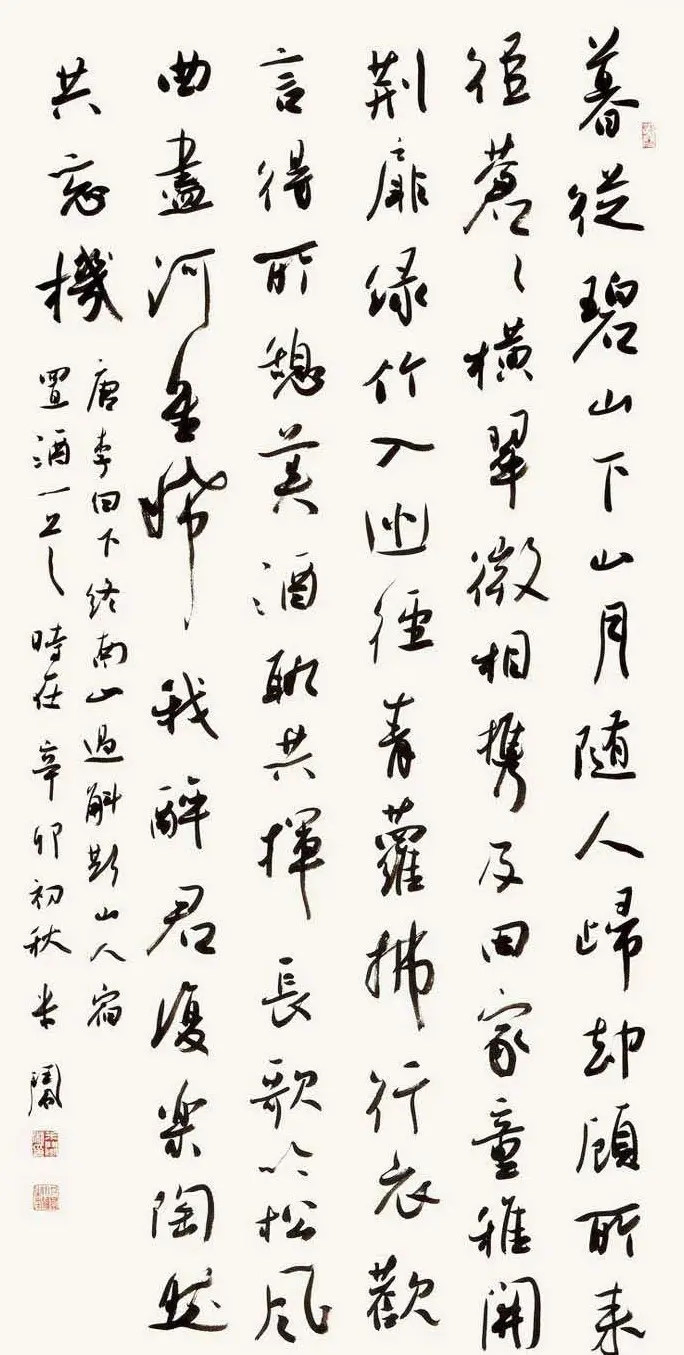 暮從碧山下山月随人歸却顧所来
徑蒼々横翠微相携及田家童稚開
荆扉緑竹入幽徑青蘿拂行衣歡
言得所憩美酒聊共揮長歌吟松風
曲盡河星稀我醉君復樂陶然
共忘機
唐李白下终南山過斛斯山人宿
置酒一首時在辛卯初秋